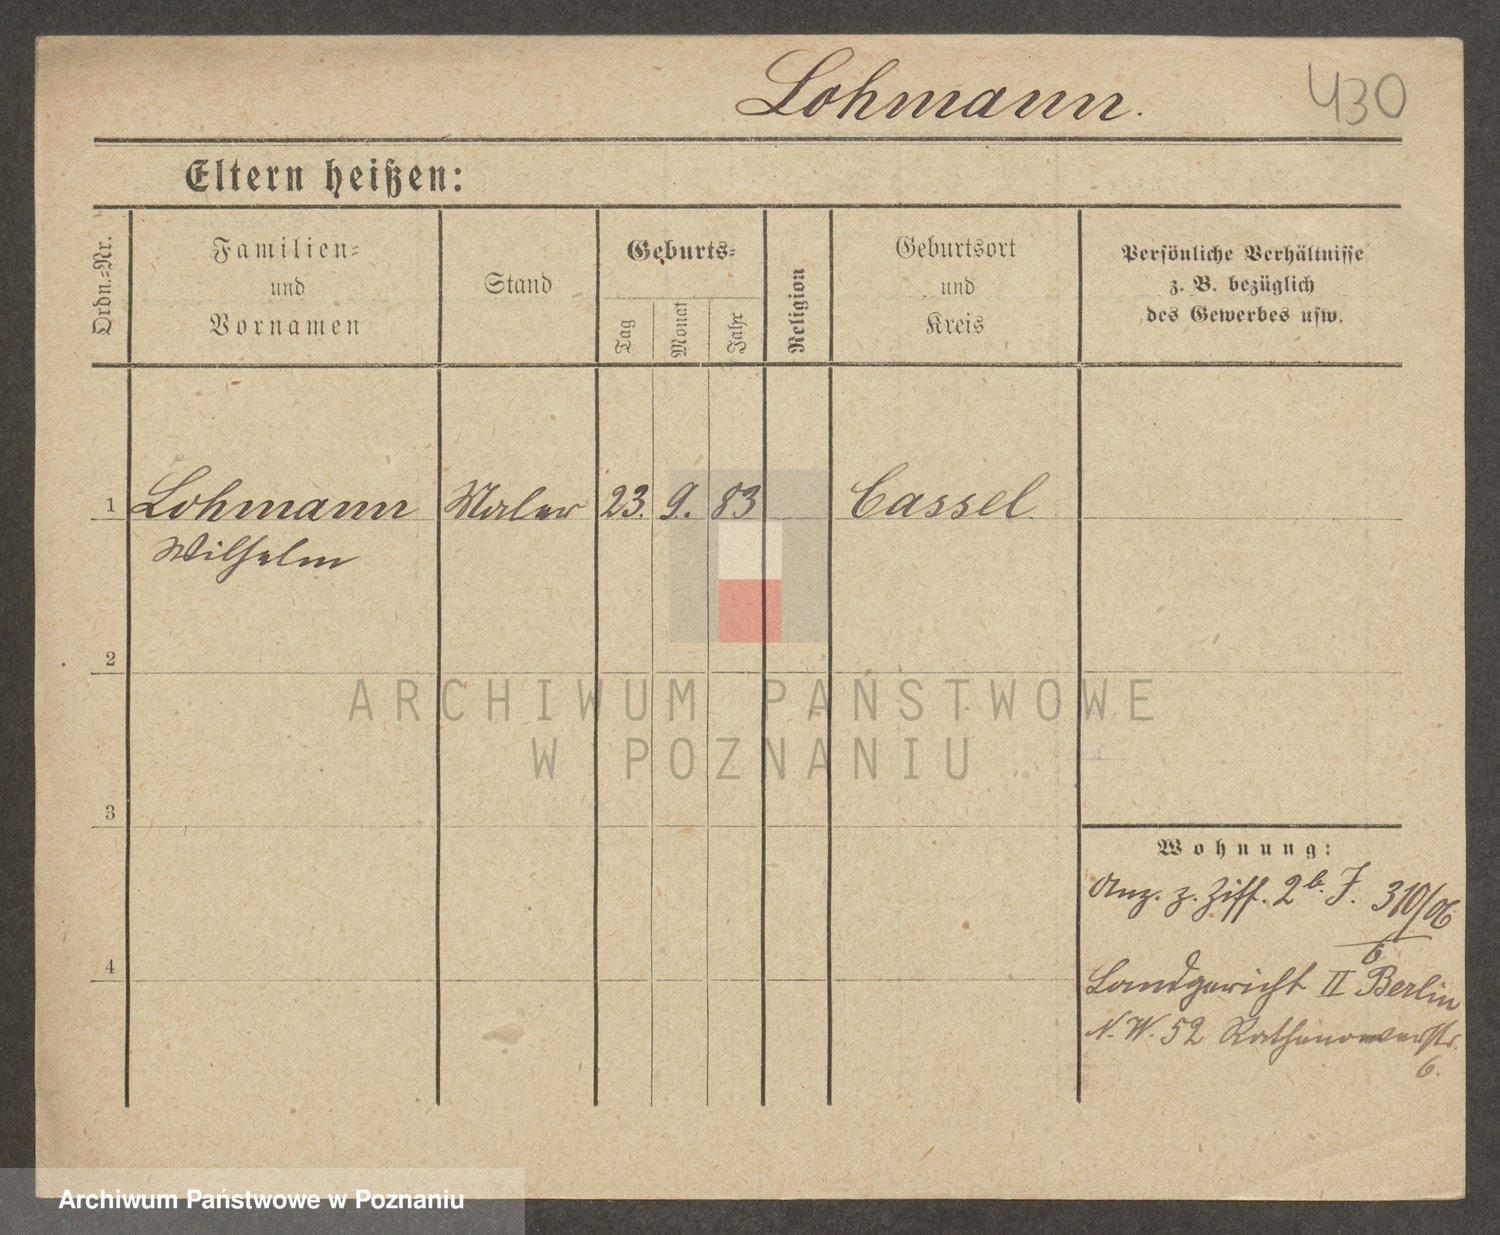 Lohmann.
430
Eltern heißen:
Ordn.=Nr.
Familien=
und
Vornamen
Stand
Geburts=
Tag
Monat
Jahr
Religion
Geburtsort
und
Kreis
Persönliche Verhältnisse
z. B. bezüglich
des Gewerbes usw.
1
Lohmann
Wilhelm
Maler
23.
9.
83
Cassel
2
ARCHIWUM PAŃSTWOWE
W POZNANIU
3
Wohnung:
Anz. z. Ziff. 2b. J. 310/06
6
4
Landgericht II Berlin
N. W. 52 Rathenowerstr.
6.
Archiwum Państwowe w Poznaniu